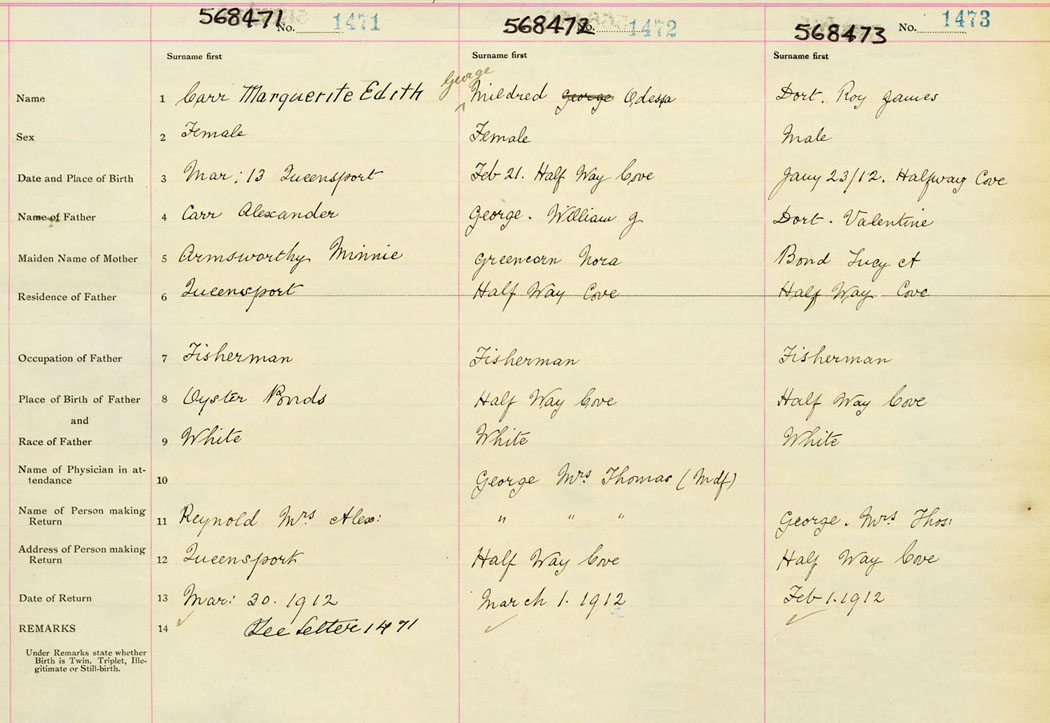 568471 No. 1471 568472 No. 1472 568473 No. 1473
Surname first Surname first Surname first
George
Name 1 Carr Marguerite Edith Mildred George Odessa Dort. Roy James
Sex 2 Female Female Male
Date and Place of Birth 3 Mar: 13 Queensport Feb 21. Half Way Cove Jany 23/12. Halfway Cove
Name of Father 4 Carr Alexander George. William G Dort. Valentine
Maiden Name of Mother 5 Armsworthy Minnie Greencorn Nora Bond Lucy A
Residence of Father 6 Queensport Half Way Cove Half Way Cove
Occupation of Father 7 Fisherman Fisherman Fisherman
Place of Birth of Father 8 Oyster Ponds Half Way Cove Half Way Cove
and
Race of Father 9 White White White
Name of Physician in at-
tendance 10 George Mrs Thomas (Mdf)
Name of Person making
Return 11 Reynold Mrs Alex: " " " George. Mrs Thos:
Address of Person making
Return 12 Queensport Half Way Cove Half Way Cove
Date of Return 13 Mar: 30. 1912 March 1. 1912 Feb 1. 1912
REMARKS 14 See Letter 1471
Under Remarks state whether
Birth is Twin. Triplet, Ille-
gitimate or Still-birth.